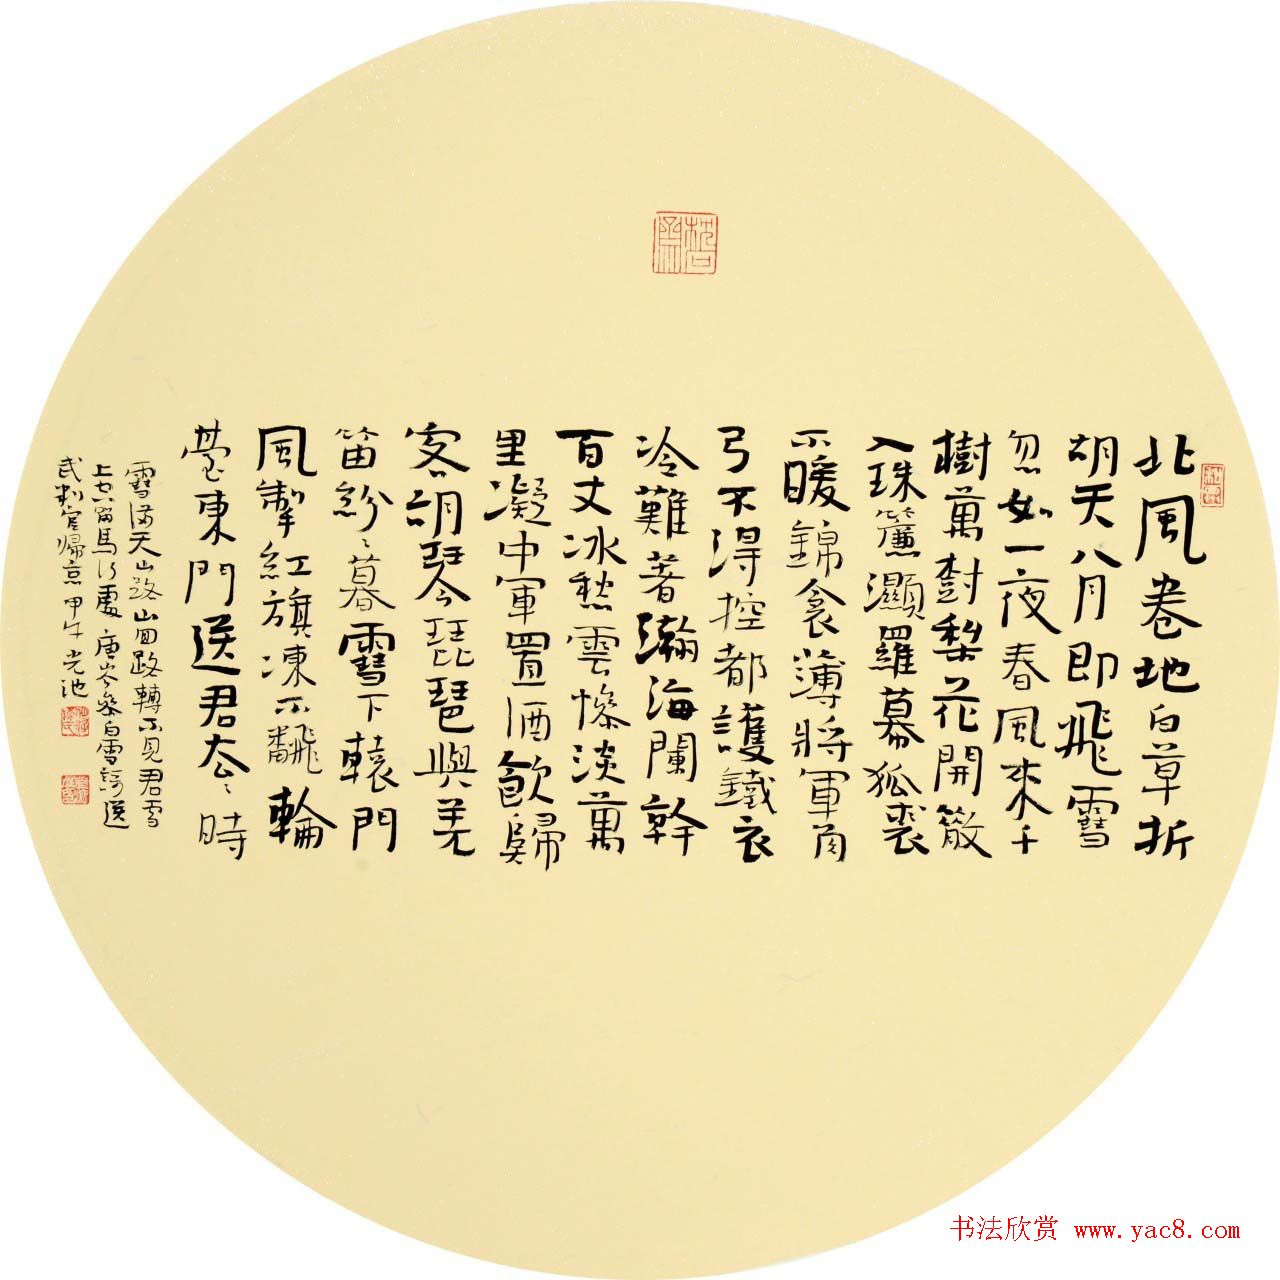 北風卷地白草折
胡天八月即飛雪
忽如一夜春風來千
樹萬樹梨花開散
入珠簾濕羅幕狐裘
不暖錦衾薄將軍角
弓不得控都護鐵衣
冷難著瀚海闌幹
百丈冰愁雲慘淡萬
里凝中軍置酒飲歸
客胡琴琵琶與羌
笛紛紛暮雪下轅門
風掣紅旗凍不翻輪
臺東門送君去去時
雪滿天山路山回路轉不見君雪
上空留馬行處 唐岑參白雪歌送
武判官歸京 甲午 光池
书法欣赏 www.yac8.com